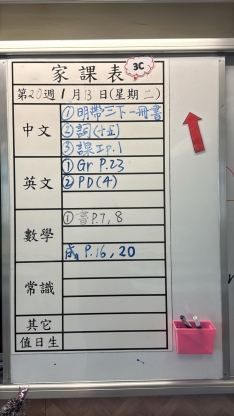 家課表
3C
第20週 1月13日(星期二)
中文
①明帶三下一冊書
②詞(十五)
③課工P.1
英文
①Gr P.23
②PD(4)
數學
①書P.7,8
P.16,20
常識
其它
值日生